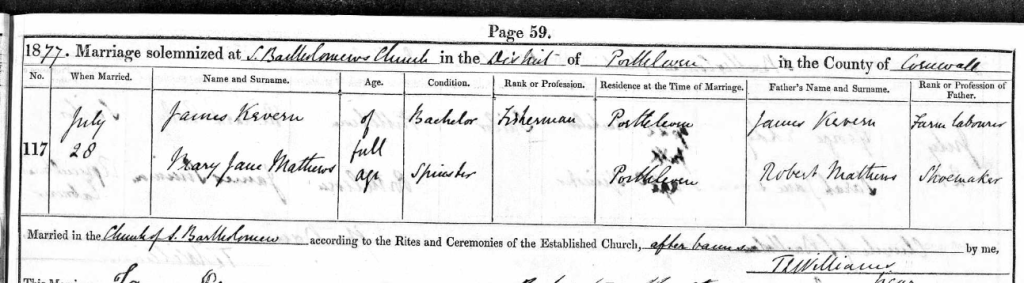 Page 59.
1877. Marriage solemnized at S. Bartholomews Church in the District of Porthleven in the County of Cornwall
No. When Married. Name and Surname. Age. Condition. Rank or Profession. Residence at the Time of Marriage. Father's Name and Surname. Rank or Profession of Father.
117 July 28 James Kevern of full age Bachelor Fisherman Porthleven James Kevern Farm labourer
Mary Jane Mathews Spinster Porthleven Robert Mathews Shoemaker
Married in the Church of S. Bartholomew according to the Rites and Ceremonies of the Established Church, after banns by me,
Williams
This